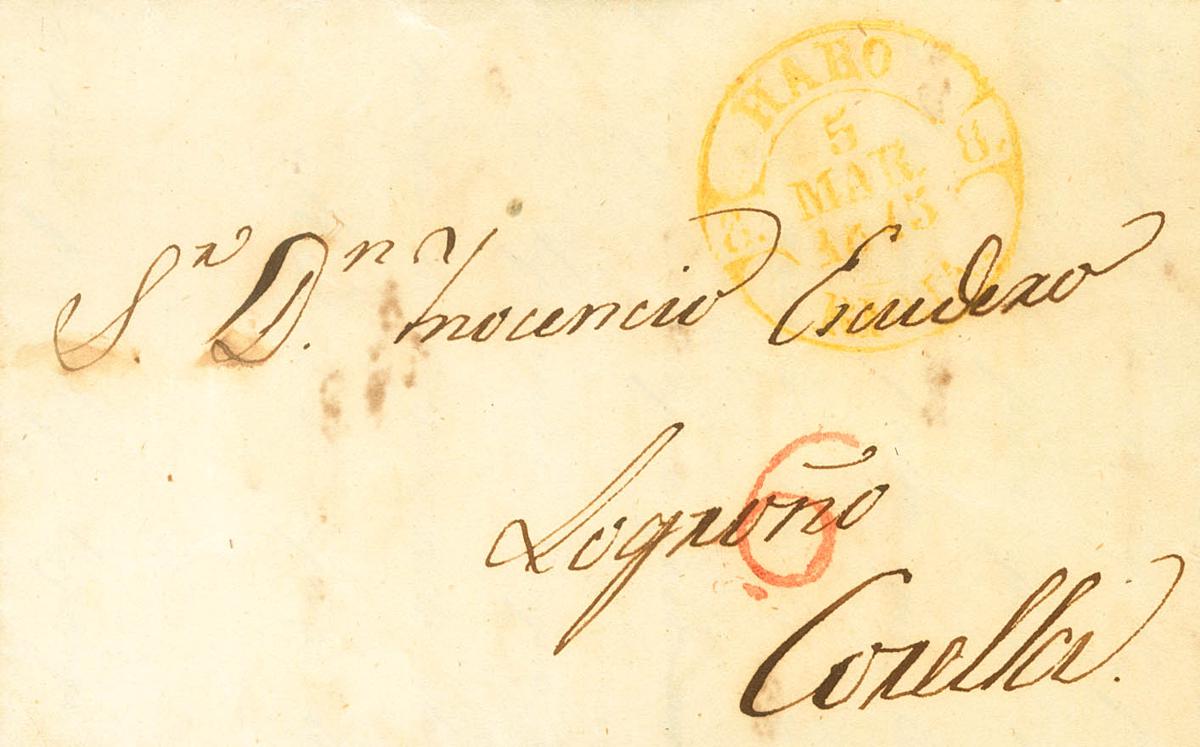 HARO
8. 8.
5
MAR
Sr Dn Inocencio Escudero
6
Logroño
Corella.